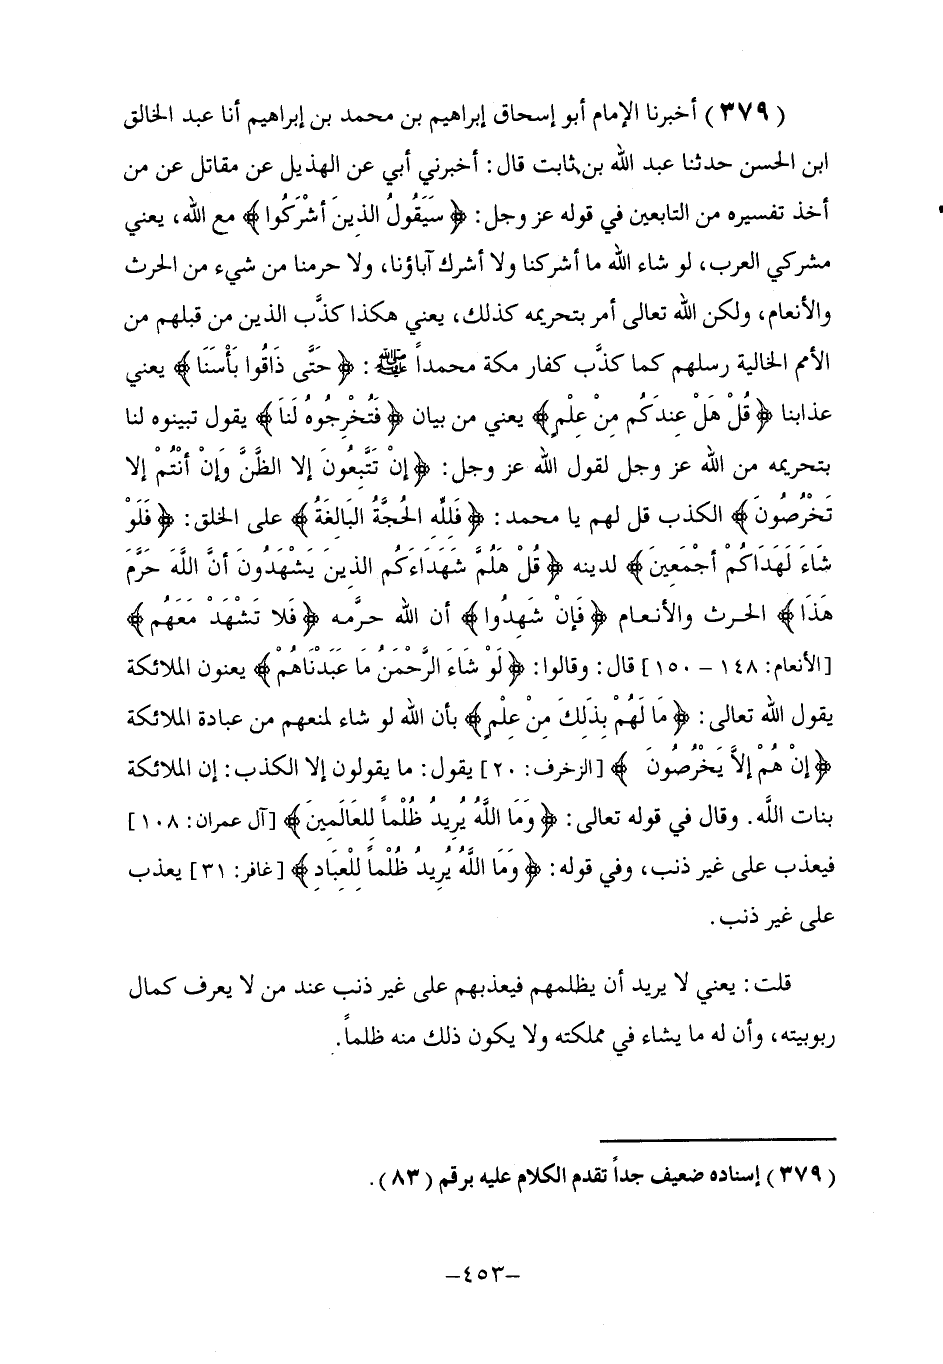 (٣٧٩) أخبرنا الإمام أبو إسحاق إبراهيم بن محمد بن إبراهيم أنا عبد الخالق
ابن الحسن حدثنا عبد الله بن ثابت قال: أخبرني أبي عن الهذيل عن مقاتل عن من
أخذ تفسيره من التابعين في قوله عز وجل: ﴿سَيَقُولُ الذينَ أشْرَكُوا﴾ مع الله، يعني
مشركي العرب، لو شاء الله ما أشركنا ولا أشرك آباؤنا، ولا حرمنا من شيء من الحرث
والأنعام، ولكن الله تعالى أمر بتحريمه كذلك، يعني هكذا كذَّب الذين من قبلهم من
الأمم الخالية رسلهم كما كذَّب كفار مكة محمداً ﷺ: ﴿حَتَّى ذَاقُوا بَأْسَنَا﴾ يعني
عذابنا ﴿قُلْ هَلْ عِندَكُم مِنْ عِلْمٍ﴾ يعني من بيان ﴿فَتُخْرِجُوهُ لَنَا﴾ يقول تبينوه لنا
بتحريمه من الله عز وجل لقول الله عز وجل: ﴿إنْ تَتَّبِعُونَ إلا الظَّنَّ وَإنْ أنْتُمْ إلا
تَخْرُصُونَ﴾ الكذب قل لهم يا محمد: ﴿فَلِلَّهِ الحُجَّةُ البَالغَةُ﴾ على الخلق: ﴿فَلَوْ
شَاءَ لَهَدَاكُمْ أجْمَعِينَ﴾ لدينه ﴿قُلْ هَلُمَّ شَهَدَاءَكُم الذينَ يَشْهَدُونَ أنَّ اللَّهَ حَرَّمَ
هَذَا﴾ الحرث والأنعام ﴿فَإنْ شَهِدُوا﴾ أن الله حرَّمه ﴿فَلا تَشْهَدْ مَعَهُم﴾
[الأنعام: ١٤٨ - ١٥٠] قال: وقالوا: ﴿لَوْ شَاءَ الرَّحْمَنُ مَا عَبَدْنَاهُمْ﴾ يعنون الملائكة
يقول الله تعالى: ﴿مَا لَهُمْ بِذَلِكَ مِنْ عِلْمٍ﴾ بأن الله لو شاء لمنعهم من عبادة الملائكة
﴿إنْ هُمْ إلاَّ يَخْرُصُونَ﴾ [الزخرف: ٢٠] يقول: ما يقولون إلا الكذب: إن الملائكة
بنات اللَّه. وقال في قوله تعالى: ﴿وَمَا اللَّهُ يُرِيدُ ظُلْماً للعَالَمِينَ﴾ [آل عمران: ١٠٨]
فيعذب على غير ذنب، وفي قوله: ﴿وَمَا اللَّهُ يُرِيدُ ظُلْماً للْعِبَادِ﴾ [غافر: ٣١] يعذب
على غير ذنب.
قلت: يعني لا يريد أن يظلمهم فيعذبهم على غير ذنب عند من لا يعرف كمال
ربوبيته، وأن له ما يشاء في مملكته ولا يكون ذلك منه ظلماً.
(٣٧٩) إسناده ضعيف جداً تقدم الكلام عليه برقم (٨٣).
-٤٥٣-